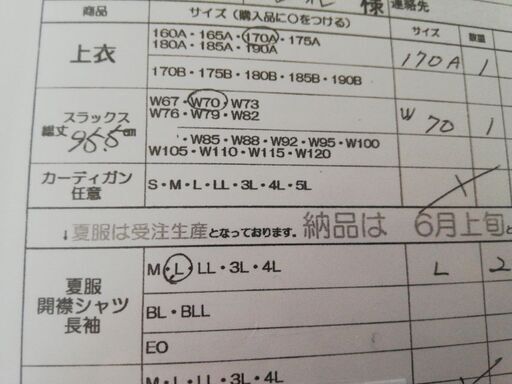 様 連絡先
商品 サイズ (購入品に○をつける) サイズ 数量
上衣
160A・165A・170A・175A
180A・185A・190A
170A 1
170B・175B・180B・185B・190B
スラックス
総丈 95.5cm
W67・W70・W73
W76・W79・W82
W 70 1
・W85・W88・W92・W95・W100
W105・W110・W115・W120
カーディガン
任意
S・M・L・LL・3L・4L・5L
↓夏服は受注生産となっております。納品は 6月上旬と
夏服
開襟シャツ
長袖
M・L・LL・3L・4L
L 2
BL・BLL
EO
M・L・LL・3L・4L